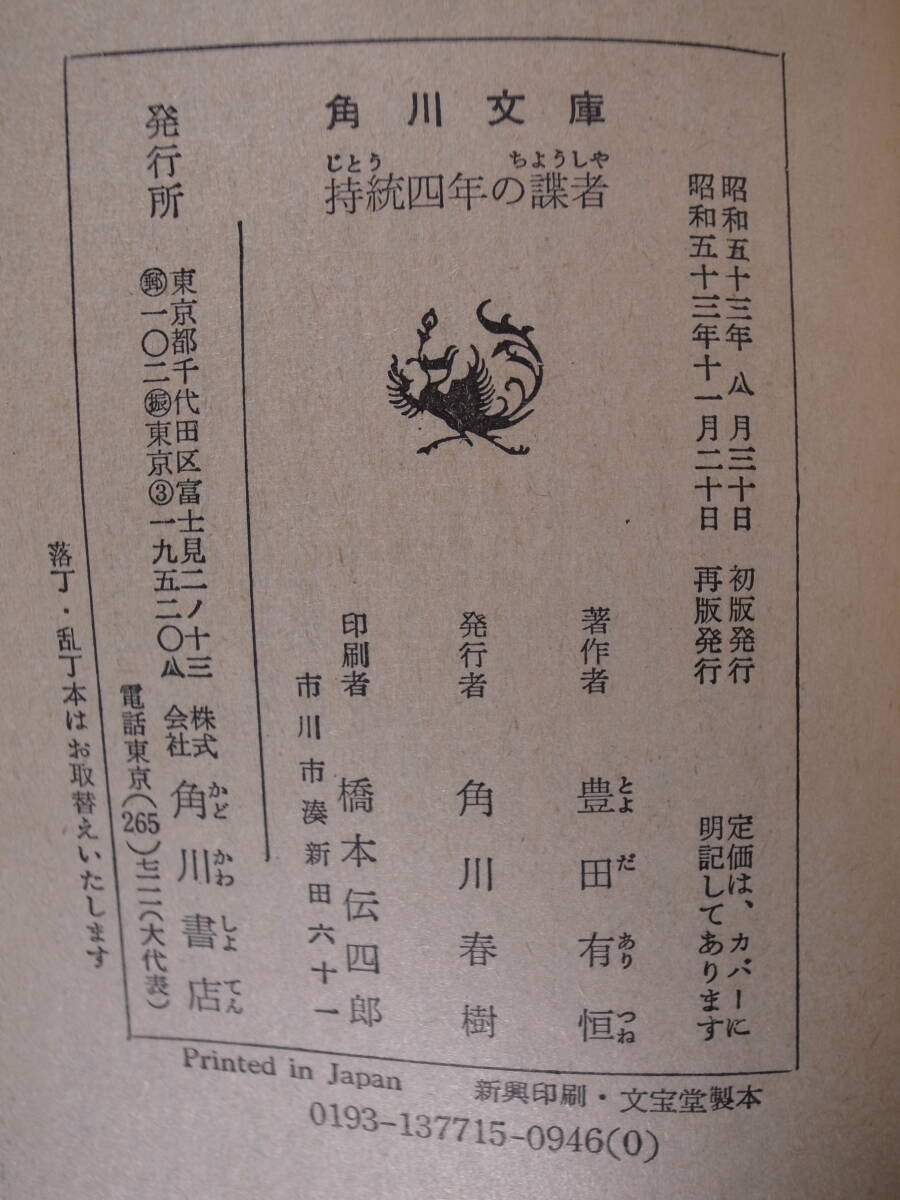 角川文庫
じとう ちようしや
持統四年の諜者
昭和五十三年 八 月三十日 初版発行
昭和五十三年十一月二十日 再版発行
定価は、カバーに
明記してあります
著作者 豊田有恒
とよ だ あり つね
発行者 角川春樹
印刷者 橋本伝四郎
市川市湊新田六十一
発行所
東京都千代田区富士見二ノ十三
㊩一〇二㊩東京③一九五二〇八
株式会社 角川書店
かど かわ しよ てん
電話東京(265)七一一一(大代表)
落丁・乱丁本はお取替えいたします
Printed in Japan
新興印刷・文宝堂製本
0193-137715-0946(0)